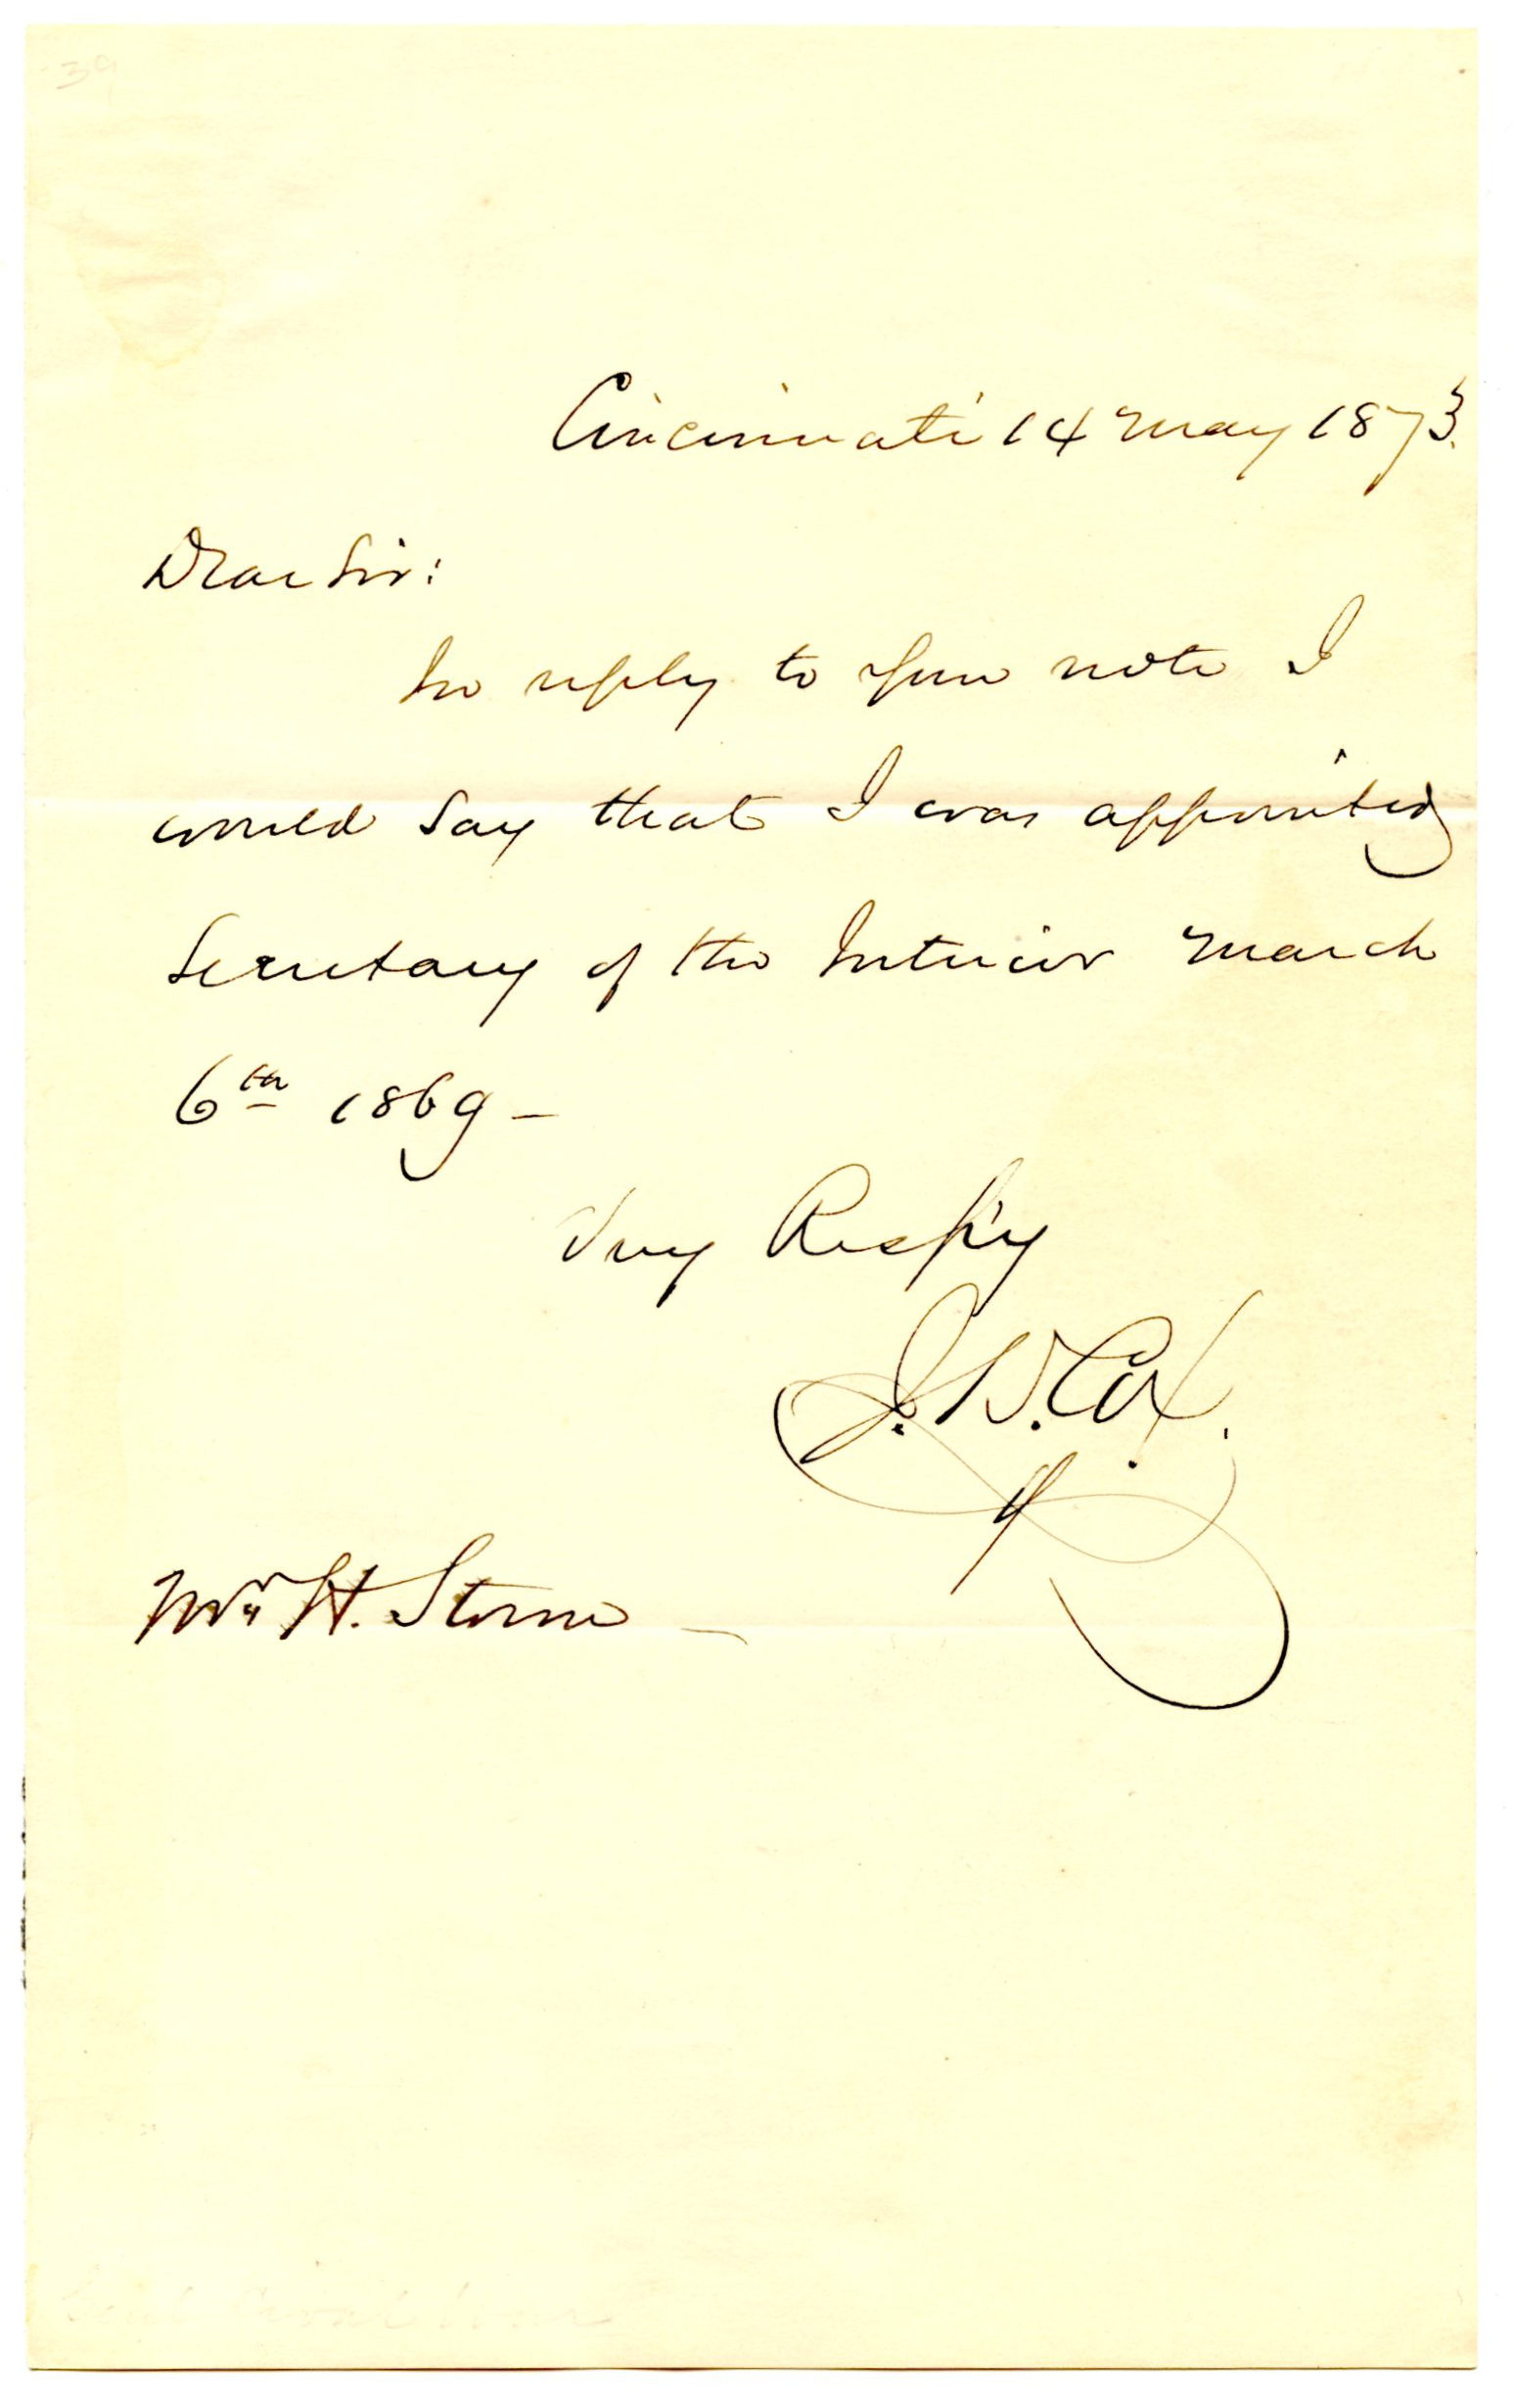 39
Cincinnati 14 May 1873.
Dear Sir:
In reply to your note I
would say that I was appointed
Secretary of the Interior March
6th 1869 –
Very Resp'y
J. D. Cox.
Mr. H. Storm –